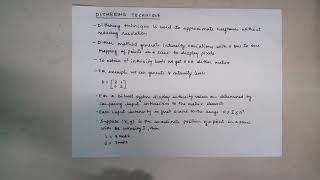 DITHERING TECHNIQUE
- Dithering technique is used to approximate halftones without
reducing resolution
- Dither method generate intensity variations with a one to one
mapping of points in a scene to display pixels
- To obtain n² intensity levels we get n x n dither matrix
- For example we can generate 4 intensity levels
- For a bilevel system display intensity values are determined by
comparing input intensities to the matrix elements
- Each input intensity is first scaled to the range 0 ≤ I ≤ n²
- Suppose (x,y) is the coordinate position of a point in a scene
with the intensity I, then
i = x mod n
j = y mod n